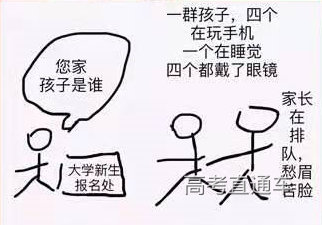 您家
孩子是谁
大学新生
报名处
一群孩子，四个
在玩手机
一个在睡觉
四个都戴了眼镜
家长
在
排
队，
愁眉
苦脸
高考直通车